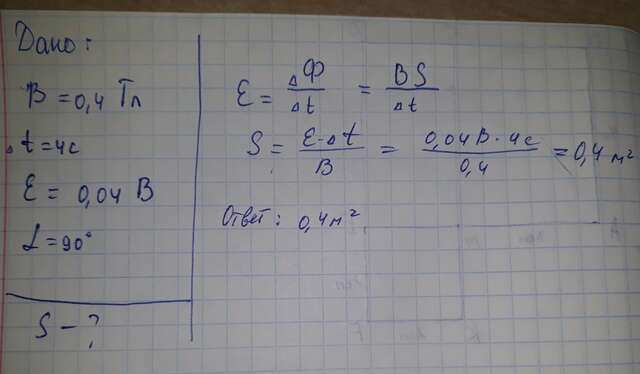 Дано:
B = 0,4 Тл
Δt = 4с
Ɛ = 0,04 В
L = 90°
S - ?
Ɛ = ΔФ/Δt = BS/Δt
S = Ɛ·Δt/B = 0,04В · 4с/0,4 = 0,4 м²
Ответ: 0,4м²